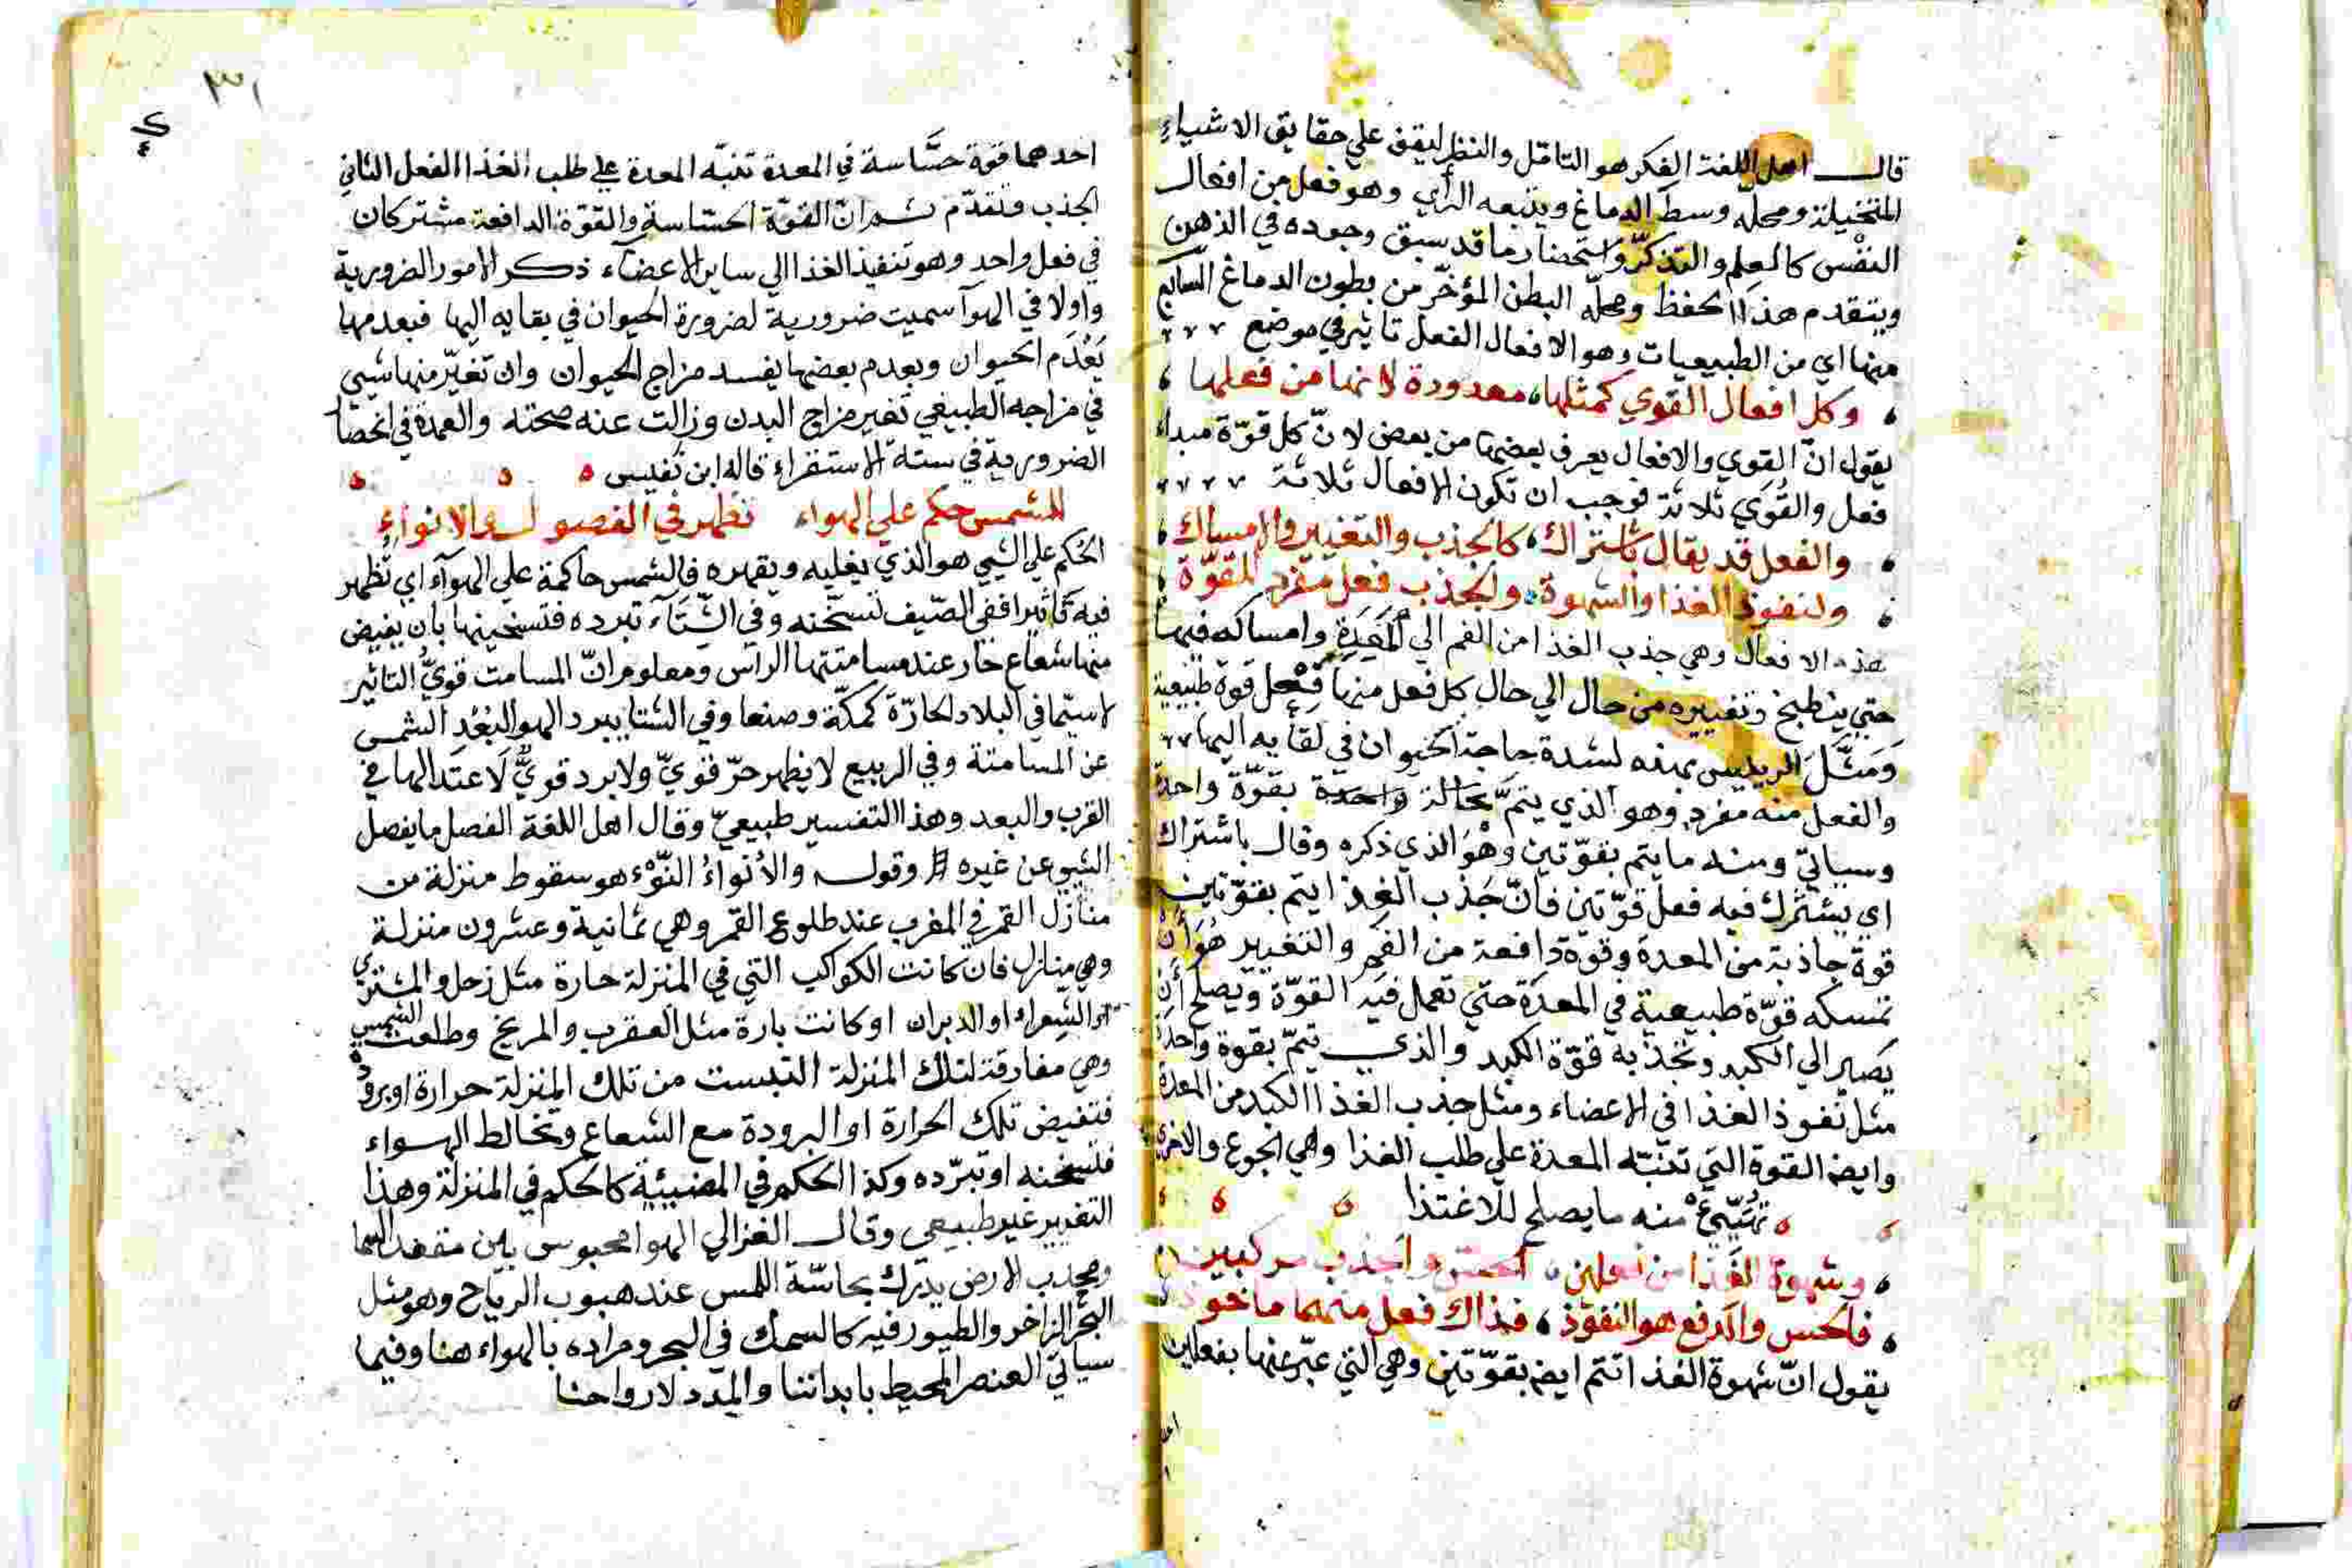 قال اهل اللغة الفكر هو التامّل والنظر ليقف علي حقايق الاشياءِ
المتخيلة ومحله وسط الدماغ ويتبعه الرأي وهو فعل من افعال
النفْس كالعلم والتذكرّ واستحضار ما قد سبق وجوده في الذهن
ويتقدم هذا الحفظ ومحلّه البطن المؤخّر من بطون الدماغ السابع
منها اي من الطبيعيات وهو الافعال الفعل تاثير في موضع
وكل افعال القوي كمثلها، معدودة لانها من فعلها
يقول انّ القوي والافعال يعرف بعضها من بعض لانّ كل قوّة مبداء
فعل والقُوَي ثلاثة فوجب ان تكون الافعال ثلاثة
والفعل قد يقال باشتراك، كالجذب والتغيير والامساك
ولنفوذ الغذا والشهوة، والجذب فعل مفرد للقوّة
هذه الافعال وهي جذب الغذا من الفم الي المَعِدَةِ وامساكه فيها
حتي ينطبخ وتغييره من حال الي حال كل فعل منها فِعْل قوة طبيعية
وَمَثَّلَ الرييس بهذه لشدة حاجة الحيوان في لقايه اليها
والفعل منه مفرد وهو الذي يتمّ بحالة واحدة بقوّة واحدة
وسياتي ومنه ما يتم بقوّتين وهْوَ الذي ذكره وقال باشتراك
اي يشترك فيه فعل قوّتين فانّ جَذب الغذا يتم بقوّتين
قوة جاذبة من المعدة وقوّة دافعة من الفم والتغيير هُوَ أن
تمسكه قوّة طبيعية في المعدة حتي تعمل فيه القوّة ويصلح أن
يَصير الي الكبد وتجذبه قوّة الكبد والذي يتمّ بقوة واحدة
مثل نفوذ الغذا في الاعضاء ومثل جذب الغذا الكبد من المعدة
وايضا القوة التي تنبّه المعدة علي طلب الغذا وهي الجوع والاخري
تُهَيّئُ منه ما يصلح للاغتذا
وشهوة الغَذا من فعلين، الحسّ والجذب مركبين
فالحس والدفع هو النفوذ، فذاك فعل منهما ماخوذ
يقول انّ شهوة الغذا تتم ايضا بقوّتين وهي التي عبّر عنها بفعلين
٣١
احدهما قوة حسَّاسة في المعدة تنبّه المعدة علي طلب الغذا الفعل الثاني
الجذب وتقدّم ثم انّ القوّة الحسّاسة والقوّة الدافعة مشتركان
في فعل واحد وهو تنفيذ الغذا الي ساير الاعضآء ذكر الامور الضرورية
واولا في الهوآ سميت ضرورية لضرورة الحيوان في بقايه اليها فبعدمها
يَعْدَم الحيوان وبعدم بعضها يفسد مزاج الحيوان وان تغيّر منها شيي
في مزاجه الطبيعي تغير مزاج البدن وزالت عنه صحته والعمدة في انحصار
الضرورية في ستة الاستقراء قاله ابن نفيس
للشمس حكم علي الهواء تظهر في الفصول والانواءِ
الحُكم علي الشيي هو الذي يغلبه ويقهره فالشمس حاكمة علي الهوآء اي تُظهر
فيه تاثيرا ففي الصّيف تسخّنه وفي الشتآء تبرده فتسخينها بان يفيض
منها شعاع حار عند مسامتتها الراس ومعلوم انّ المسامت قويُّ التاثير
لا سيّما في البلاد الحارّة كمكّة وصنعا وفي الشتا يبرد الهوا لبُعْدِ الشمس
عن المسامتة وفي الربيع لا يظهر حرّ قويّ ولا برد قويٌّ لاعتدالها في
القرب والبعد وهذا التفسير طبيعيّ وقال اهل اللغة الفصل ما يفصل
الشيي عن غيره وقوله والأنواءُ النّوْء هو سقوط منزلة من
منازل القمر في المغرب عند طلوع القمر وهي ثمانية وعشرون منزلة
وهي منازل فان كانت الكواكب التي في المنزلة حارة مثل زحل والمشتري
او الشعراء او الدبران او كانت باردة مثل العقرب والمريخ وطلعت الشمس
وهي مفارقة لتلك المنزلة التبست من تلك المنزلة حرارة او برودة
فتفيض تلك الحرارة او البرودة مع الشعاع وتخالط الهواء
فتسخنه او تبرّده وكذا الحكم في المضيئة كالحكم في المنزلة وهذا
التقرير غير طبيعي وقال الغزالي الهوا محبوس بين مقعد السما
ومحدب الارض يدرك بحاسّة اللمس عند هبوب الرياح وهو مثل
البحر الزاخر والطيور فيه كالسمك في البحر ومراده بالهواء هنا وفيما
سياتي العنصر المحيط بابداننا والمِدّد لارواحنا